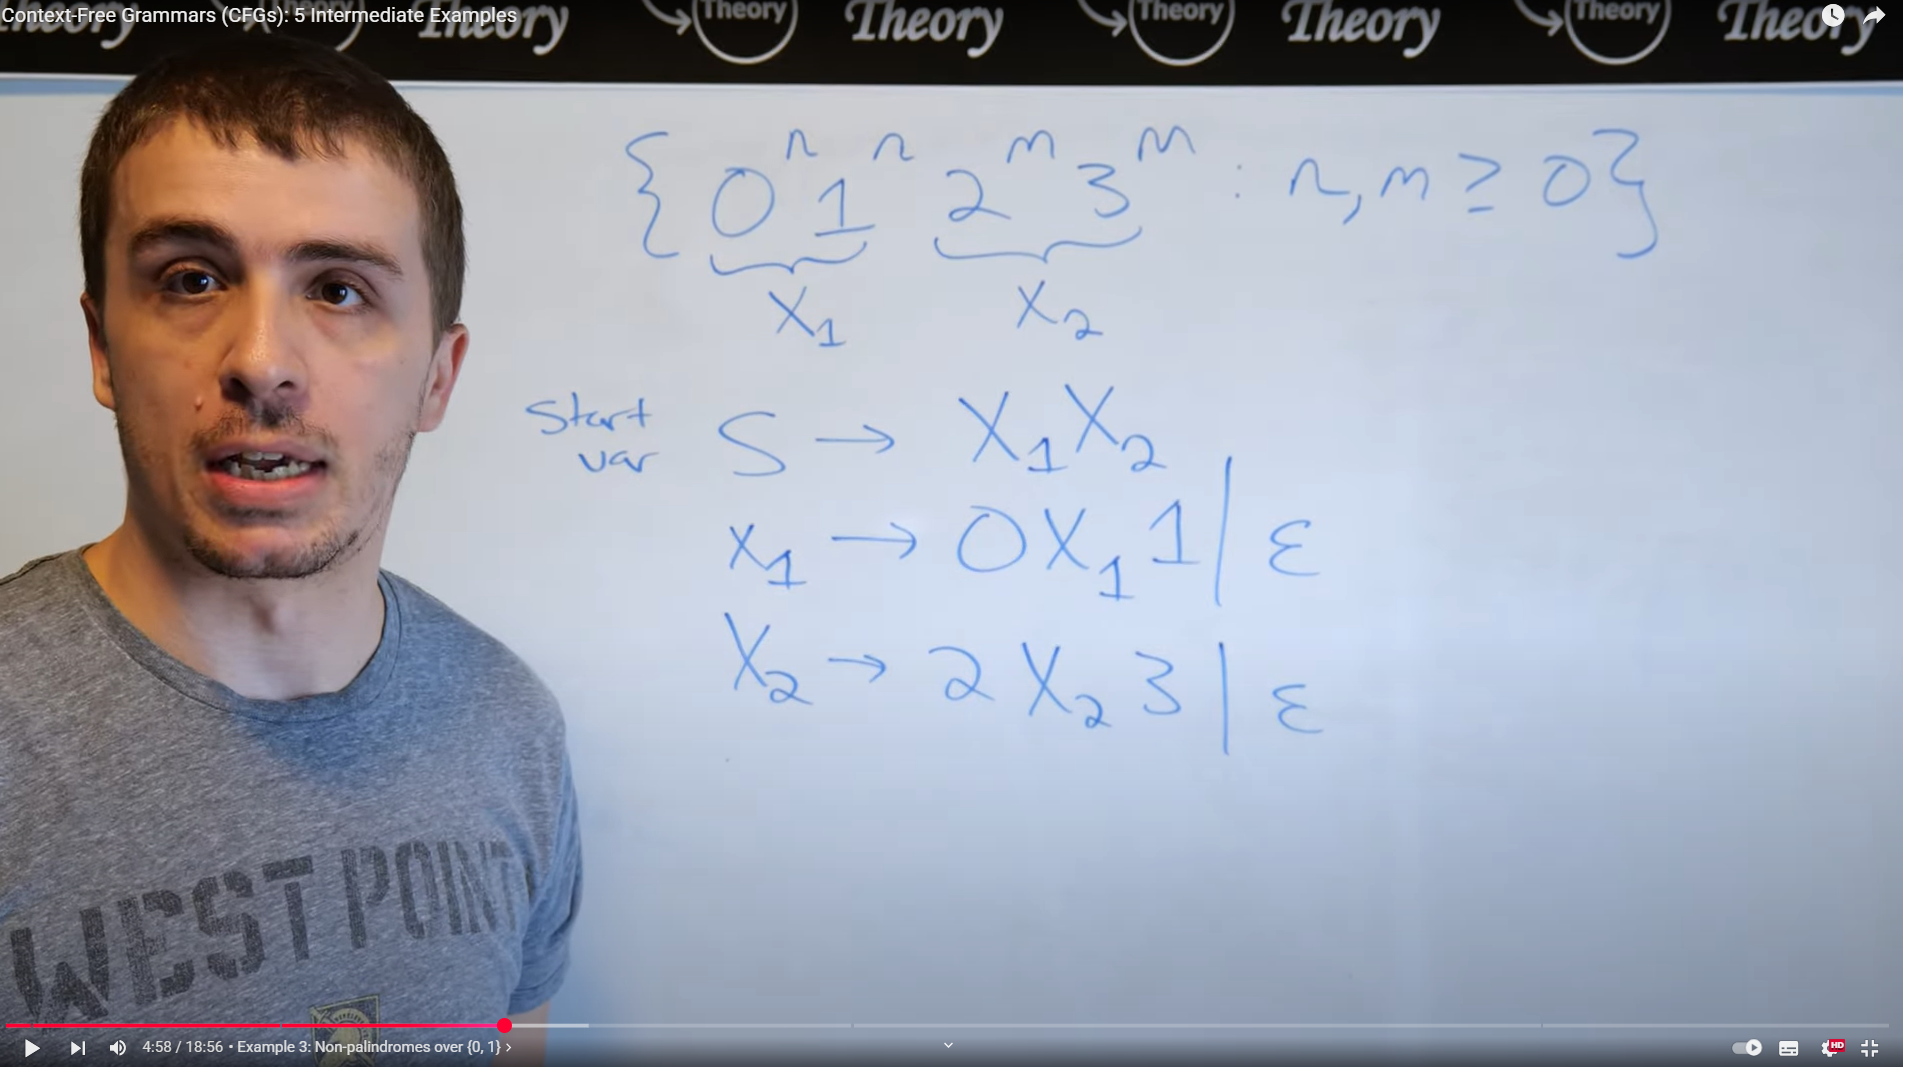 Context-Free Grammars (CFGs): 5 Intermediate Examples
Theory Theory Theory Theory Theory Theory Theory
{0ⁿ1ⁿ2ᵐ3ᵐ : n,m ≥ 0}
X₁ X₂
Start var S → X₁X₂
X₁ → 0X₁1 | ε
X₂ → 2X₂3 | ε
WEST POINT
4:58 / 18:56 • Example 3: Non-palindromes over {0, 1} >
HD